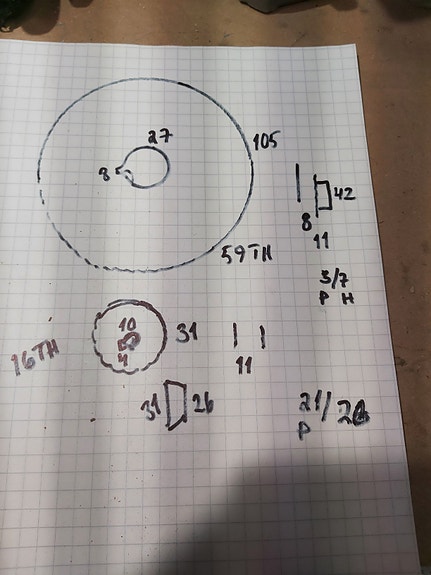 27
105
8
42
8
11
59TH
5/7
P H
10
4
31
16TH
11
31
26
21/
P